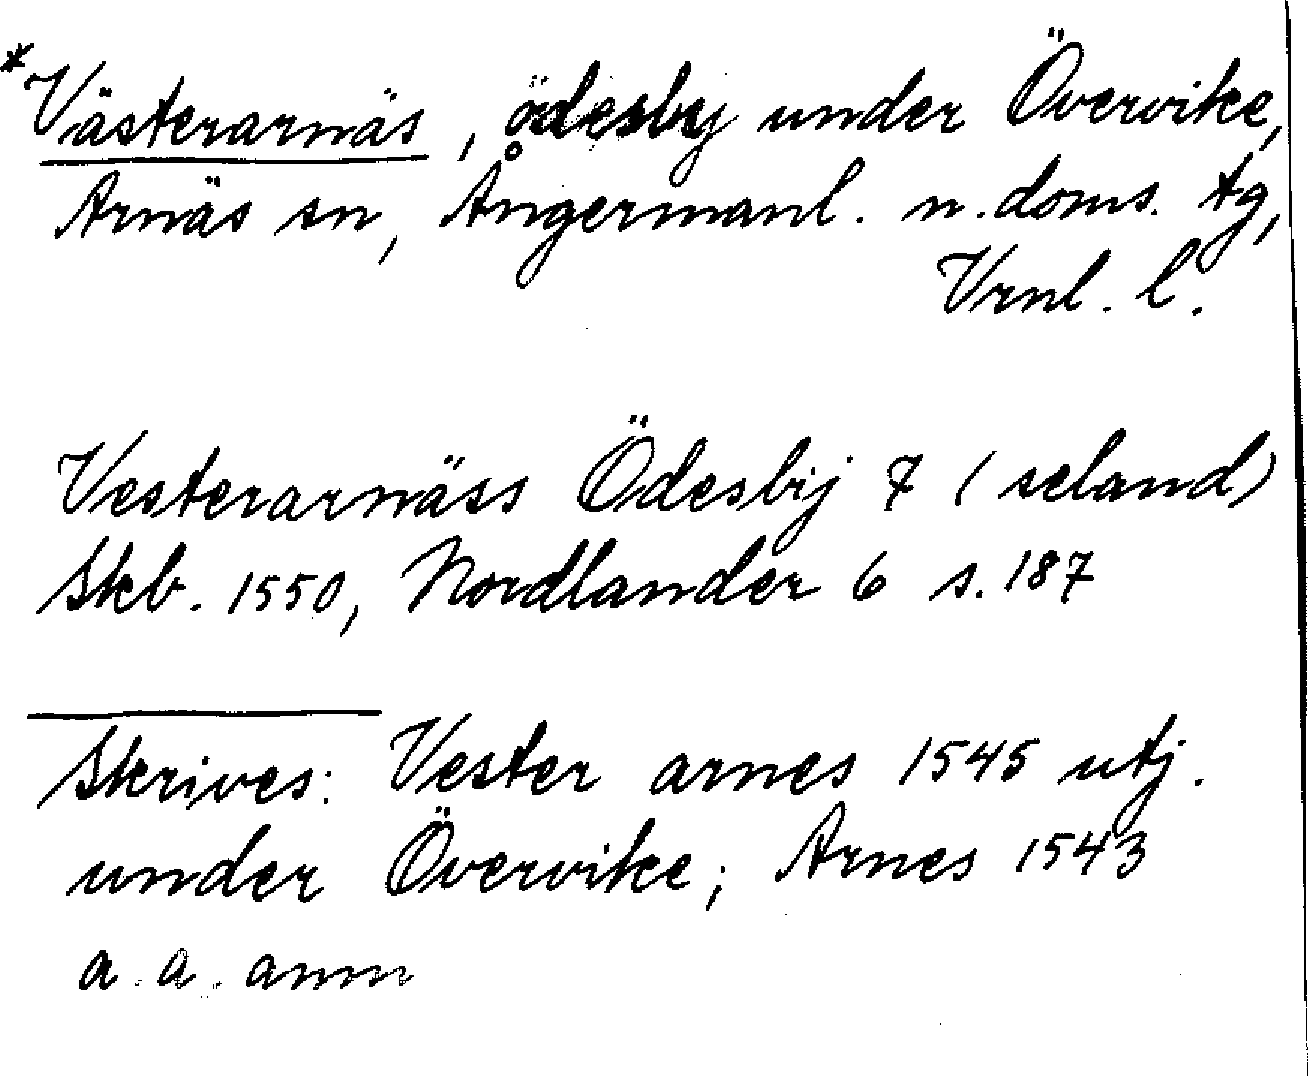 *Västerarnäs, ödesby under Övervike,
Arnäs sn, Ångermanl. n. doms. tg,
Vrnl. l.
Vesterarnäss Ödesbÿ 7 (seland)
Skb. 1550, Nordlander 6 s. 187
Skrives: Vester arnes 1545 utj.
under Övervike; Arnes 1543
a. a. anm